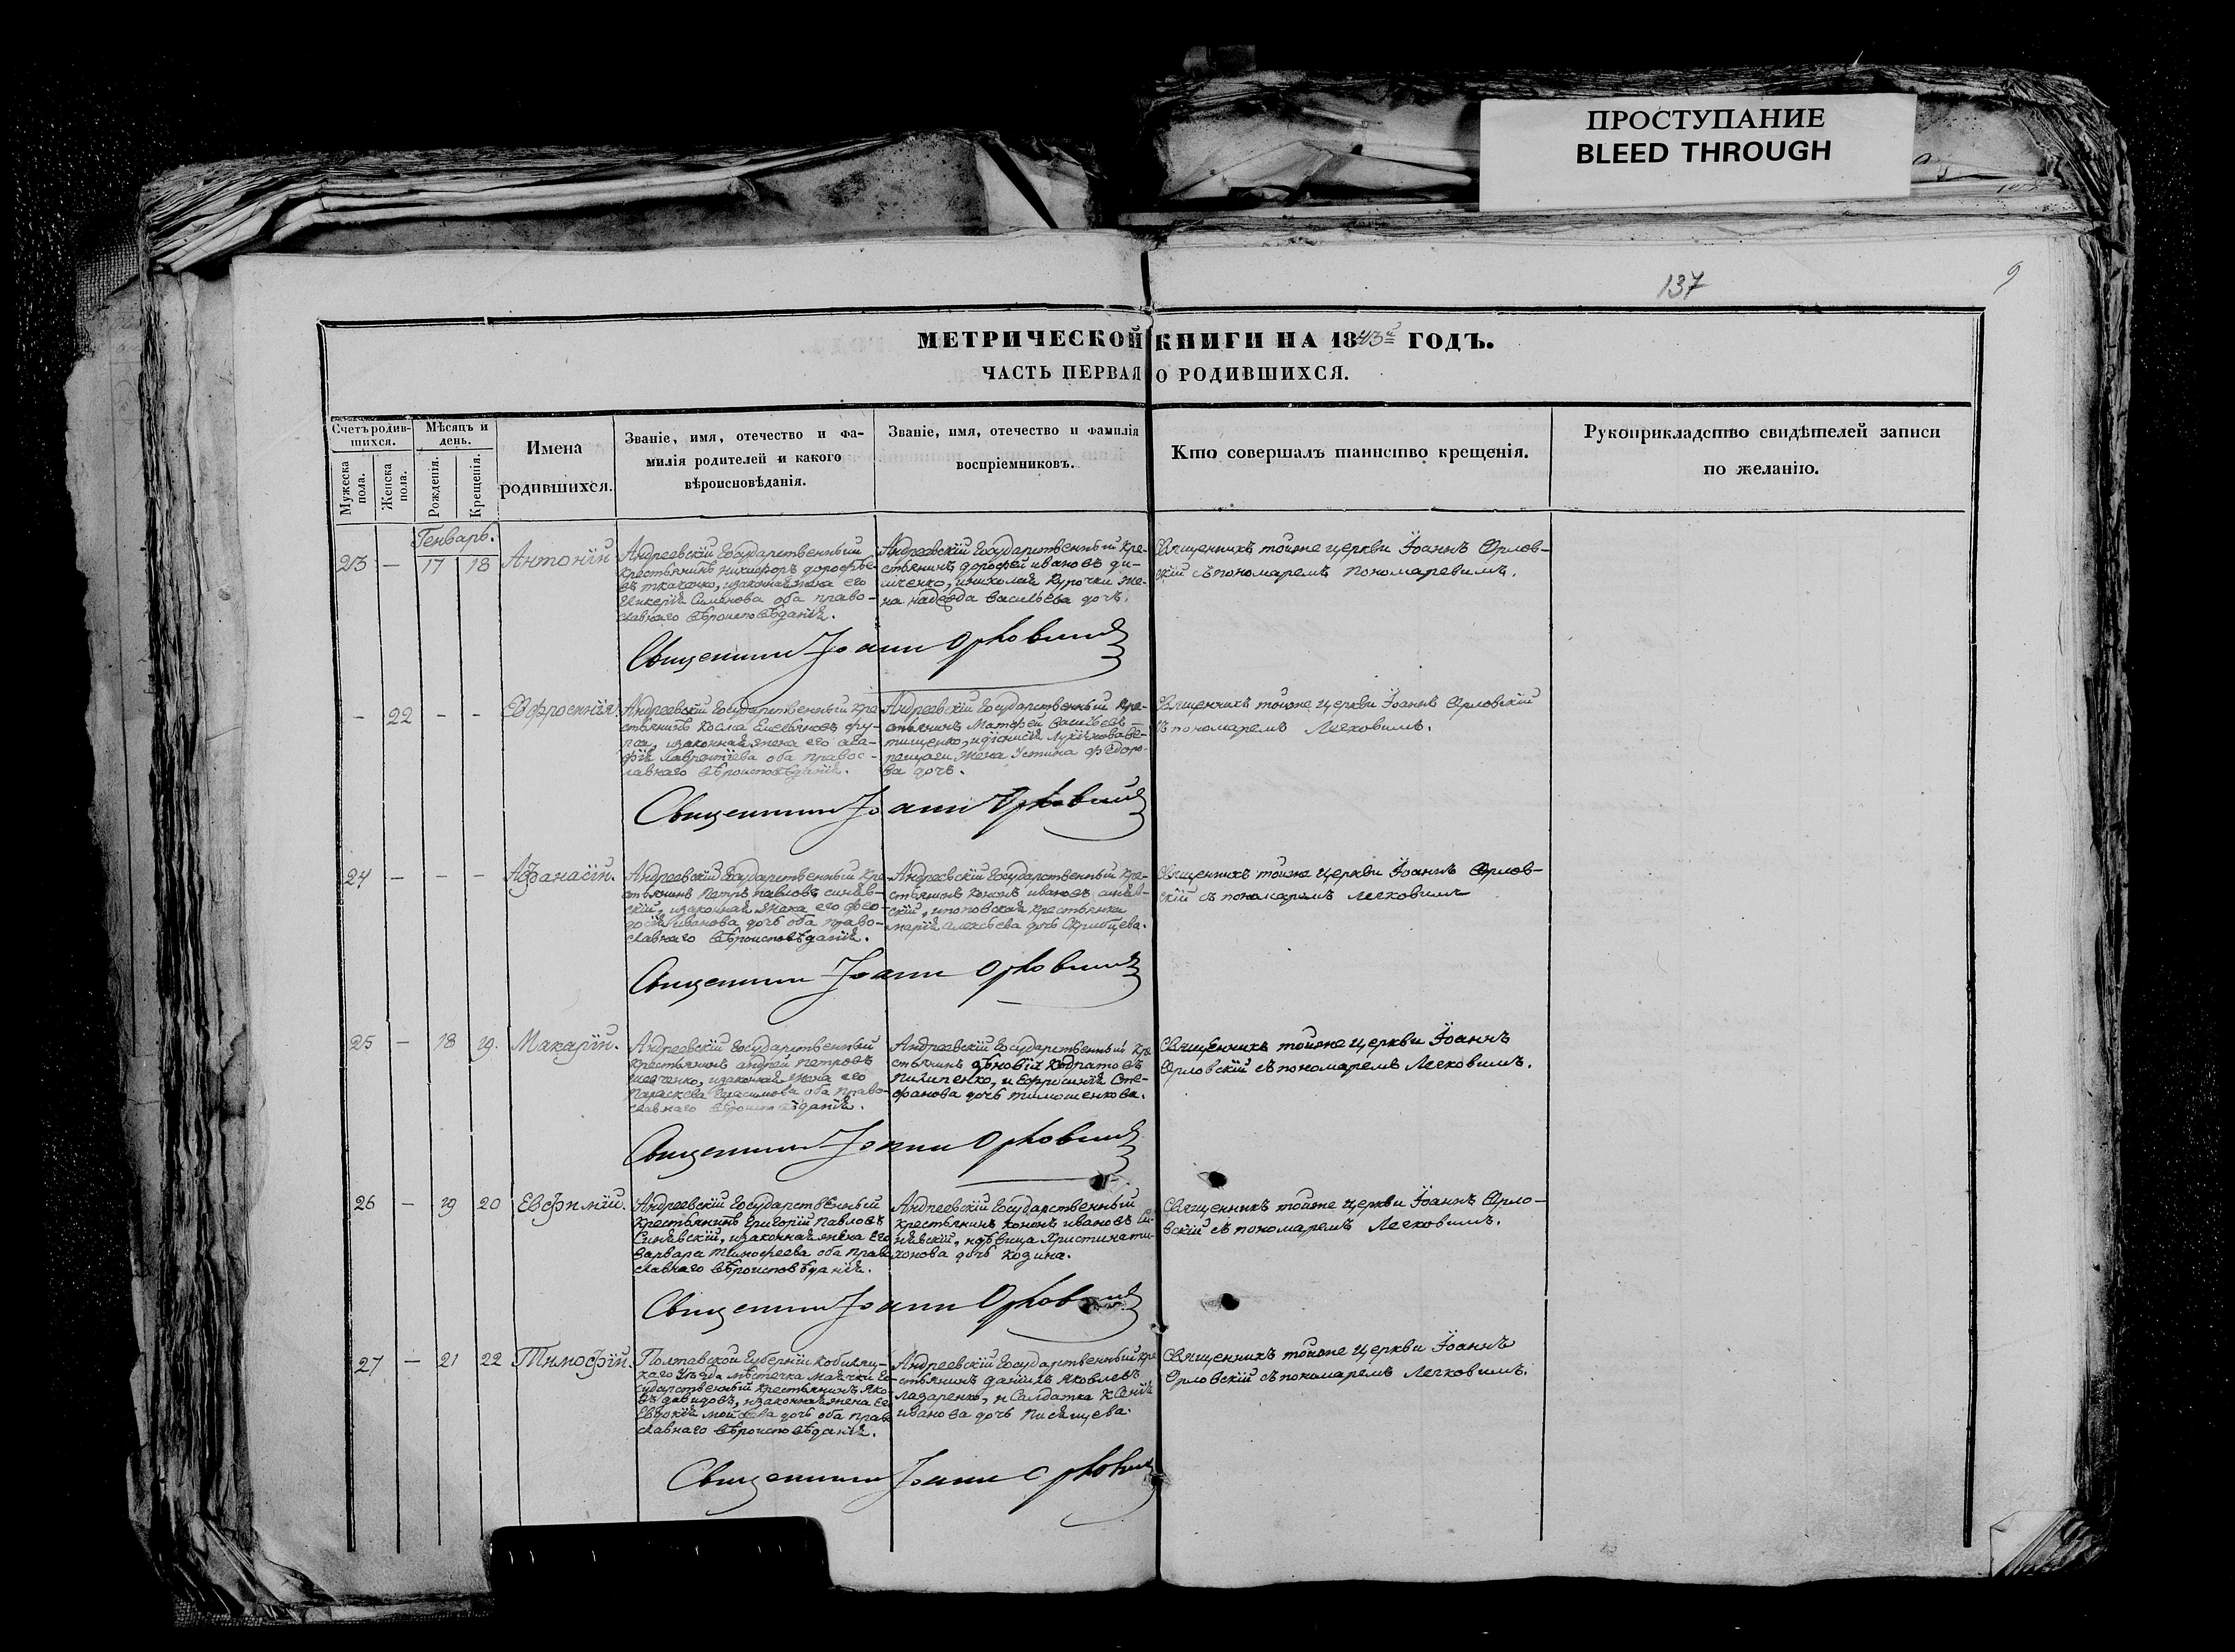 ПРОСТУПАНИЕ
BLEED THROUGH
137
9
МЕТРИЧЕСКОЙ КНИГИ НА 1843й ГОДЪ.
ЧАСТЬ ПЕРВАЯ О РОДИВШИХСЯ.
Счетъ родив-
шихся.
Мужеска
пола.
Женска
пола.
Мѣсяцъ и
день.
Рожденія.
Крещенія.
Имена
родившихся.
Званіе, имя, отечество и фа-
милія родителей и какого
вѣроисповѣданія.
Званіе, имя, отечество и фамилія
воспріемниковъ.
Кто совершалъ таинство крещенія.
Рукоприкладство свидѣтелей записи
по желанію.
Генварь.
23 — 17 18 Антоній
Андреевскій Государственный
крестьянинъ никифоръ дорофѣе-
въ ткаченко, изаконная жена его
Гликерія Симонова оба право-
славнаго вѣроисповѣданія.
Андреевскій Государственный кре-
стьянинъ дорофей ивановъ ди-
ченко, иниколая Курочки же-
на надежда васильева дочь.
Священникъ тойже церкви Іоаннъ Орлов-
скій съ пономаремъ Пономаревимъ.
Священникъ Іоаннъ Орловский
— 22 — — Евфросинія
Андреевскій Государственный кре
стьянинъ Косма Емельяновъ
изаконная жена его ага-
фія лаврентіева оба правос-
лавнаго вѣроисповѣданія.
Андреевскій Государственный кре-
стьянинъ Матфей васильевъ
тищенко, идіонисія Лукіянова
жена Устина федоро-
ва дочь.
Священникъ тойже церкви Іоаннъ Орловскій
съ пономаремъ Легковимъ.
Священникъ Іоаннъ Орловский
24 — — — Афанасій.
Андреевскій Государственный кре
стьянинъ Петръ павловъ синяв-
скій, изаконная жена его фео-
досія иванова дочь оба право-
славнаго вѣроисповѣданія.
Андреевскій Государственный кре-
стьянинъ кононъ ивановъ синяв-
скій, ипоповская крестьянка
марія алексѣева дочь
Священникъ тойже церкви Іоаннъ Орлов-
скій съ пономаремъ легковимъ
Священникъ Іоаннъ Орловский
25 — 18 19. Макарій.
Андреевскій Государственный
крестьянинъ андрей петровъ
изаконная жена его
Параскева Герасимова оба право-
славнаго вѣроисповѣданія.
Андреевскій Государственный кре
стьянинъ Кодратовъ
пилипенко, и Ефросинія Сте-
фанова дочь тимошенкова.
Священникъ тойже церкви Іоаннъ
Орловскій съ пономаремъ Легковимъ.
Священникъ Іоаннъ Орловский
26 — 19 20 Евфимій.
Андреевскій Государственный
Крестьянинъ григорій павловъ
Синявскій, изаконная жена Его
варвара тимофеева оба право
славнаго вѣроисповѣданія.
Андреевскій Государственный
крестьянинъ кононъ ивановъ Си-
нявскій, идѣвица Христина ти-
хонова дочь козина.
Священникъ тойже церкви Іоаннъ Орло-
вскій съ пономаремъ Легковимъ.
Священникъ Іоаннъ Орловский
27 — 21 22 Тимофій.
Полтавской Губерніи кобиляц-
каго Уѣзда мѣстечка маячки Го-
сударственный крестьянинъ Яко-
въ давидовъ, изаконная жена его
Евдокія моисѣева дочь оба право
славнаго вѣроисповѣданія.
Андреевскій Государственный кре
стьянинъ даніилъ яковлевъ
лазаренко, и Салдатка ксенія
иванова дочь
Священникъ тойже церкви Іоаннъ
Орловскій съ пономаремъ Легковимъ.
Священникъ Іоаннъ Орловский